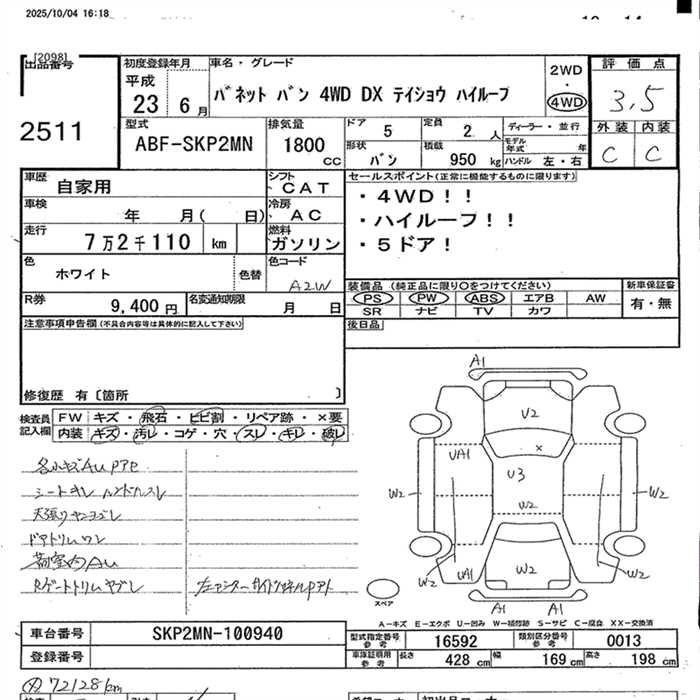 2025/10/04 16:18
[2098]
出品番号
2511
初度登録年月
平成
23 6 月
車名・グレード
バネット バン 4WD DX テイショウ ハイルーフ
2WD
・
4WD
評価点
3,5
外装 内装
C C
型式
ABF-SKP2MN
排気量
1800
cc
ドア 5
定員 2 人
形状 バン
積載 950 kg
ディーラー・並行
モデル年式 年
ハンドル 左・右
車歴
自家用
シフト
CAT
車検 年 月( 日)
冷房
AC
走行
7万2千110 km
燃料
ガソリン
色
ホワイト
色替
色コード
A2W
R券
9,400 円
名変通知期限
月 日
セールスポイント(正常に機能するものに限ります)
・4WD!!
・ハイルーフ!!
・5ドア!
装備品(純正品に限り○をつけてください)
PS PW ABS エアB AW
SR ナビ TV カワ
新車保証書
有・無
後日品
注意事項申告欄(不具合内容等は具体的に記入して下さい)
修復歴 有〔箇所 〕
検査員記入欄
FW キズ・飛石・ヒビ割・リペア跡・×要
内装 キズ・汚レ・コゲ・穴・スレ・キレ・破レ
各小キズAUPアセ
シートキレ ハンドルスレ
天張リヤンヨゴレ
ドアトリムワレ
荷室内AU
Rゲートトリムヤブレ
A1
U2
UA1
×
U3
W2
W2
W2
W2
UA1
W2
W2
A1 A1
スペア
A-キズ E-エクボ U-凹み W-補修跡 S-サビ C-腐食 XX-交換済
車台番号 SKP2MN-100940
登録番号
型式指定番号
参考
16592
類別区分番号
参考
0013
車庫証明用
参考
長さ 428 cm
幅 169 cm
高さ 198 cm
メ 72128km